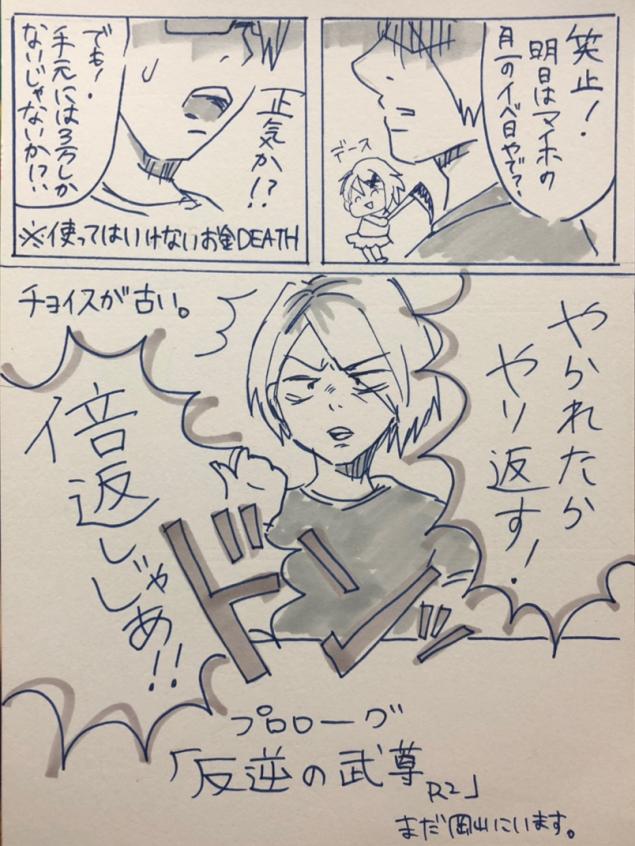 笑止!
明日はマイホの
月一のイベ日やで?
デース
正気か!?
でも!
手元には3万しか
ないじゃないか!?
※使ってはいけないお金DEATH
やられたか
やり返す!
チョイスが古い。
倍返しじゃあ!!
ドンッ
プロローグ
「反逆の武尊R2」
まだ岡山にいます。